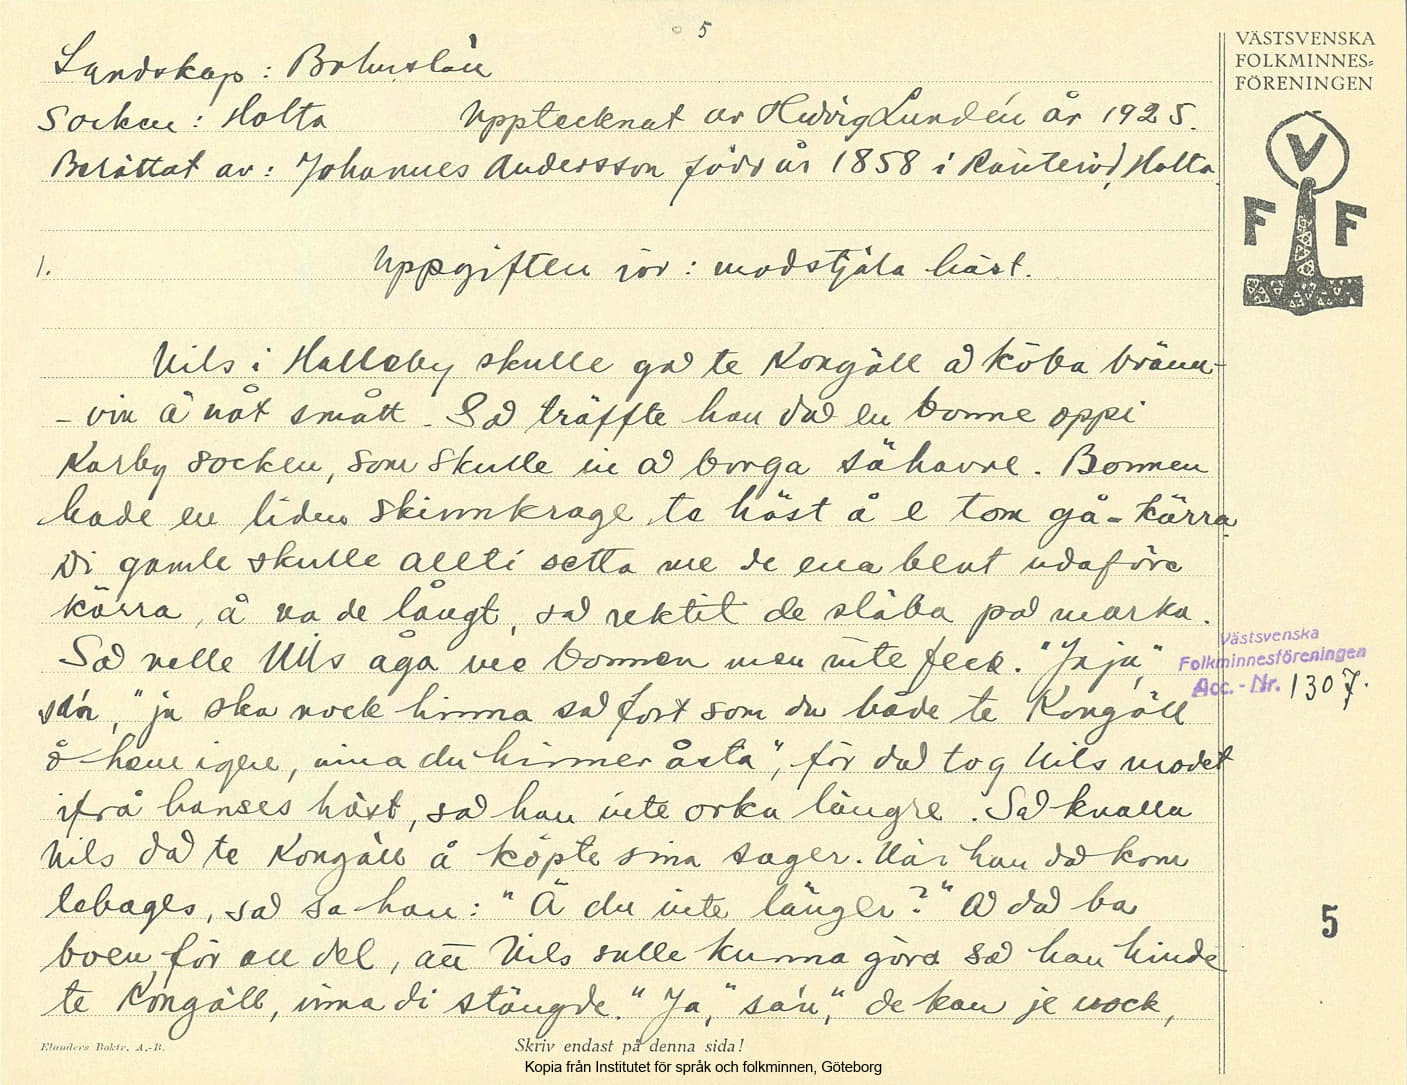 5
VÄSTSVENSKA
FOLKMINNES-
FÖRENINGEN
V
F F
Landskap: Bohuslän
Socken: Holta Upptecknat av Hedvig Lundén år 1925.
Berättat av: Johannes Andersson född år 1858 i Ranteröd, Holta.
1. Uppgiften rör: modstjäla häst.
Nils i Halleby skulle gad te Kongäll å köba bränn-
-vin å nåt smått. Sad träffte han dad en bonne oppi
Karby socken, som skulle in å borga såhavre. Bonnen
hade en liden skinnkrage te häst å e tom gå-kärra.
Di gamle skulle allti setta me de ena bent udaföre
kärra, å va de långt, sad rektit de släba pad marka.
Sad velle Nils åga me bonnen men inte feck. "Jaja,"
sa'n, "ja ska nock hinna sad fort som du både te Kongäll
å hem igen, inna du hinner åsta", för dad tog Nils modet
ifrå hanses häst, sad han inte orka längre. Sad knalla
Nils dad te Kongäll å köpte sina sager. När han dad kom
tebages, sad sa han: "Ä du inte länger?" Å dad ba
boen, för all del, att Nils sulle kunna göra sad han hinde
te Kongäll, inna di stängde. "Ja," sa'n, "de kan je nock,
Västsvenska
Folkminnesföreningen
Acc.-Nr. 1307.
5
Elanders Boktr. A.-B.
Skriv endast på denna sida!
Kopia från Institutet för språk och folkminnen, Göteborg